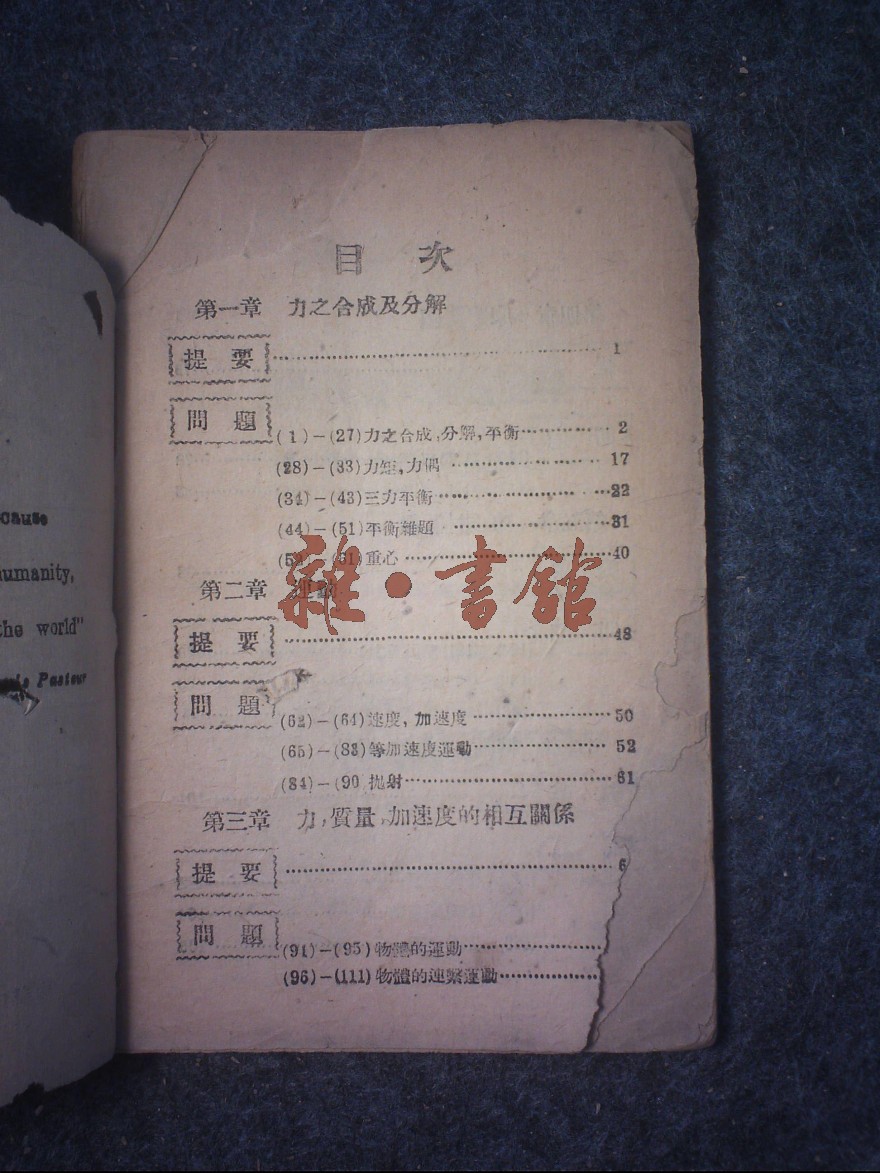 cause
umanity,
the world"
Pasteur
目 次
第一章 力之合成及分解
提 要 1
問 題
(1)-(27)力之合成,分解,平衡 2
(28)-(33)力矩,力偶 17
(34)-(43)三力平衡 22
(44)-(51)平衡雜題 31
重心 40
雜·書館
第二章 運動
提 要 48
問 題
(62)-(64)速度, 加速度 50
(65)-(83)等加速度運動 52
(84)-(90 拋射 61
第三章 力,質量,加速度的相互關係
提 要 6
問 題
(91)-(95)物體的運動
(96)-(111)物體的連繫運動